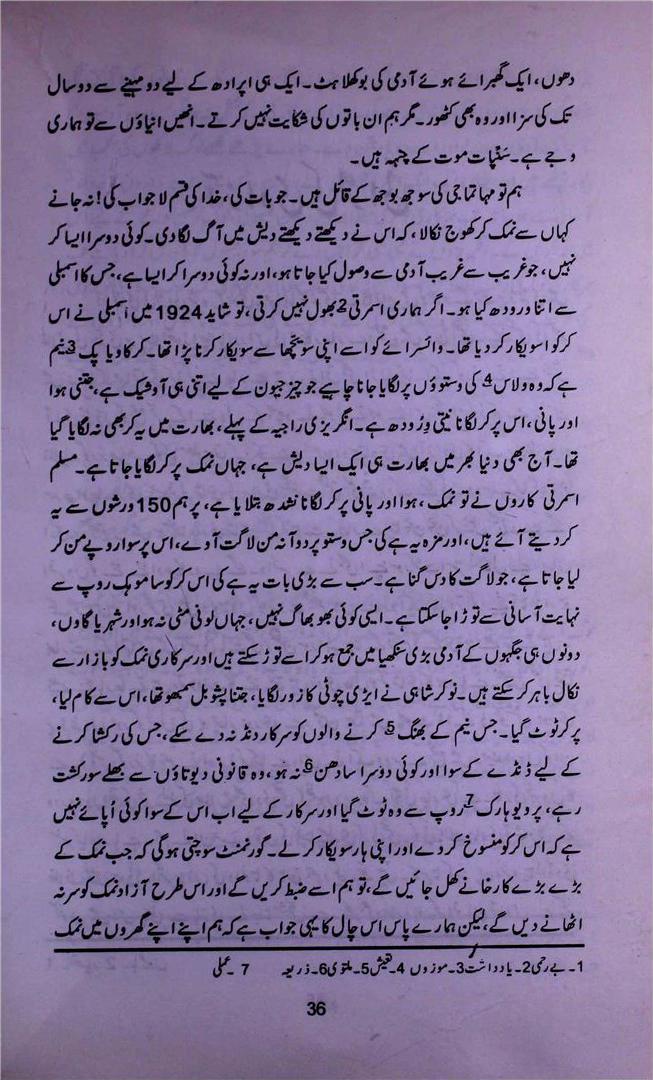 دھوں، ایک گھبرائے ہوئے آدمی کی بوکھلاہٹ۔ ایک ہی اپرادھ کے لیے دو مہینے سے دو سال
تک کی سزا اور وہ بھی کٹھور۔ مگر ہم ان باتوں کی شکایت نہیں کرتے۔ انھیں انیاؤں سے تو ہماری
وجے ہے۔ سنّپات موت کے چنہہ ہیں۔
ہم تو مہاتما جی کی سوجھ بوجھ کے قائل ہیں۔ جو بات کی، خدا کی قسم لاجواب کی! نہ جانے
کہاں سے نمک کر کھوج نکالا، کہ اس نے دیکھتے دیکھتے دیش میں آگ لگا دی۔ کوئی دوسرا ایسا کر
نہیں، جو غریب سے غریب آدمی سے وصول کیا جاتا ہو، اور نہ کوئی دوسرا کر ایسا ہے، جس کا اسمبلی
سے اتنا ورودھ کیا ہو۔ اگر ہماری اسمرتی 2 بھول نہیں کرتی، تو شاید 1924 میں اسمبلی نے اس
کر کو اسویکار کر دیا تھا۔ وائسرائے کو اسے اپنی سویچھا سے سویکار کرنا پڑا تھا۔ کر کا ویاپک 3 نیم
ہے کہ وہ ولاس 4 کی وستوؤں پر لگایا جانا چاہیے جو چیز جیون کے لیے اتنی ہی آوشیک ہے، جتنی ہوا
اور پانی، اس پر کر لگانا نیتی وِرُودھ ہے۔ انگریزی راجیہ کے پہلے، بھارت میں یہ کر بھی نہ لگایا گیا
تھا۔ آج بھی دنیا بھر میں بھارت ہی ایک ایسا دیش ہے، جہاں نمک پر کر لگایا جاتا ہے۔ مسلم
اسمرتی کاروں نے تو نمک، ہوا اور پانی پر کر لگانا نشدھ بتلایا ہے، پر ہم 150 ورشوں سے یہ
کر دیتے آئے ہیں، اور مزہ یہ ہے کی جس وستو پر دو آنہ من لاگت آوے، اس پر سوا روپے من کر
لیا جاتا ہے، جو لاگت کا دس گنا ہے۔ سب سے بڑی بات یہ ہے کی اس کر کو ساموہک روپ سے
نہایت آسانی سے توڑا جا سکتا ہے۔ ایسی کوئی بھو بھاگ نہیں، جہاں لونی مٹی نہ ہو اور شہر یا گاوں،
دونوں ہی جگہوں کے آدمی بڑی سنکھیا میں جمع ہو کر اسے توڑ سکتے ہیں اور سرکاری نمک کو بازار سے
نکال باہر کر سکتے ہیں۔ نوکرشاہی نے ایڑی چوٹی کا زور لگایا، جتنا پشو بل سمبھو تھا، اس سے کام لیا،
پر کر ٹوٹ گیا۔ جس نیم کے بھنگ 5 کرنے والوں کو سرکار دنڈ نہ دے سکے، جس کی رکشا کرنے
کے لیے ڈنڈے کے سوا اور کوئی دوسرا سادھن 6 نہ ہو، وہ قانونی دیوتاؤں سے بھلے سورکشت
رہے، پر ویوہارک 7 روپ سے وہ ٹوٹ گیا اور سرکار کے لیے اب اس کے سوا کوئی اُپائے نہیں
ہے کہ اس کر کو منسوخ کر دے اور اپنی ہار سویکار کر لے۔ گورنمنٹ سوچتی ہوگی کہ جب نمک کے
بڑے بڑے کارخانے کھل جائیں گے، تو ہم اسے ضبط کریں گے اور اس طرح آزاد نمک کو سر نہ
اٹھانے دیں گے، لیکن ہمارے پاس اس چال کا یہی جواب ہے کہ ہم اپنے اپنے گھروں میں نمک
1۔ بے رحمی 2۔ یادداشت 3۔ موزوں 4۔ تعیش 5۔ ملتوی 6۔ ذریعہ 7۔ عملی
36